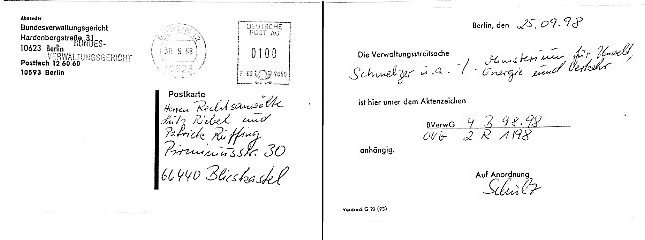 Absender
Bundesverwaltungsgericht
Hardenbergstraße 31
10623 Berlin
BUNDES-
VERWALTUNGSGERICHT
Postfach 12 60 60
10593 Berlin
BERLIN 12
DEUTSCHE
POST AG
0100
Postkarte
Herren Rechtsanwälte
Lutz Riebel und
Patrick Rüffing
Pirminiusstr. 30
66440 Blieskastel
Berlin, den 25.09.98
Die Verwaltungsstreitsache
Schmelzer u.a. ./. Ministerium für Umwelt,
Energie und Verkehr
ist hier unter dem Aktenzeichen
BVerwG 4 B 98.98
OVG 2 R 1/98
anhängig.
Auf Anordnung
Schulz
Vordruck G 70